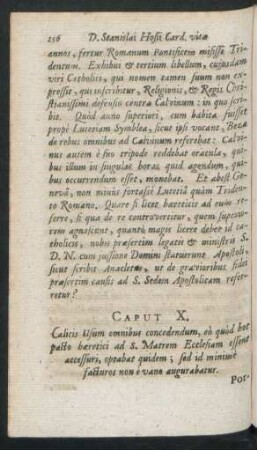 156 D. Stanislai Hosii Card. vitæ
annos, fertur Romanum Pontificem misisse Tri-
dentum. Exhibui & tertium libellum, cujusdam
viri Catholici, qui nomen tamen suum non ex-
pressit, qui inscribitur, Religionis, & Regis Chri-
stianissimi defensio contra Calvinum: in quo scri-
bit. Quòd anno superiori, cum habita fuisset
propè Lutetiam Symblea, sicut ipsi vocant, Beza
de rebus omnibus ad Calvinum referebat: Calvi-
nus autem è suo tripode reddebat oracula, qui-
bus illum in singulas horas quid agendum, qui-
bus occurrendum esset, monebat. Et abest Ge-
nevâ, non minùs fortassè Lutetiâ quàm Triden-
to Romano. Quare si licet hæreticis ad eum re-
ferre, si qua de re controvertitur, quem supremum
agnoscunt, quantò magis licere debet id ca-
tholicis, nobis præsertim legatis & ministris S.
D. N. cum jussione Domini statuerunt Apostoli,
sicut scribit Anacletus, ut de gravioribus fidei
præsertim causis ad S. Sedem Apostolicam refer-
retur?
CAPUT X.
Calicis Usum omnibus concedendum, eò quòd hoc
pacto hæretici ad S. Matrem Ecclesiam essent
accessuri, optabat quidem; sed id minimè
facturos non è vano augurabatur.
Por-